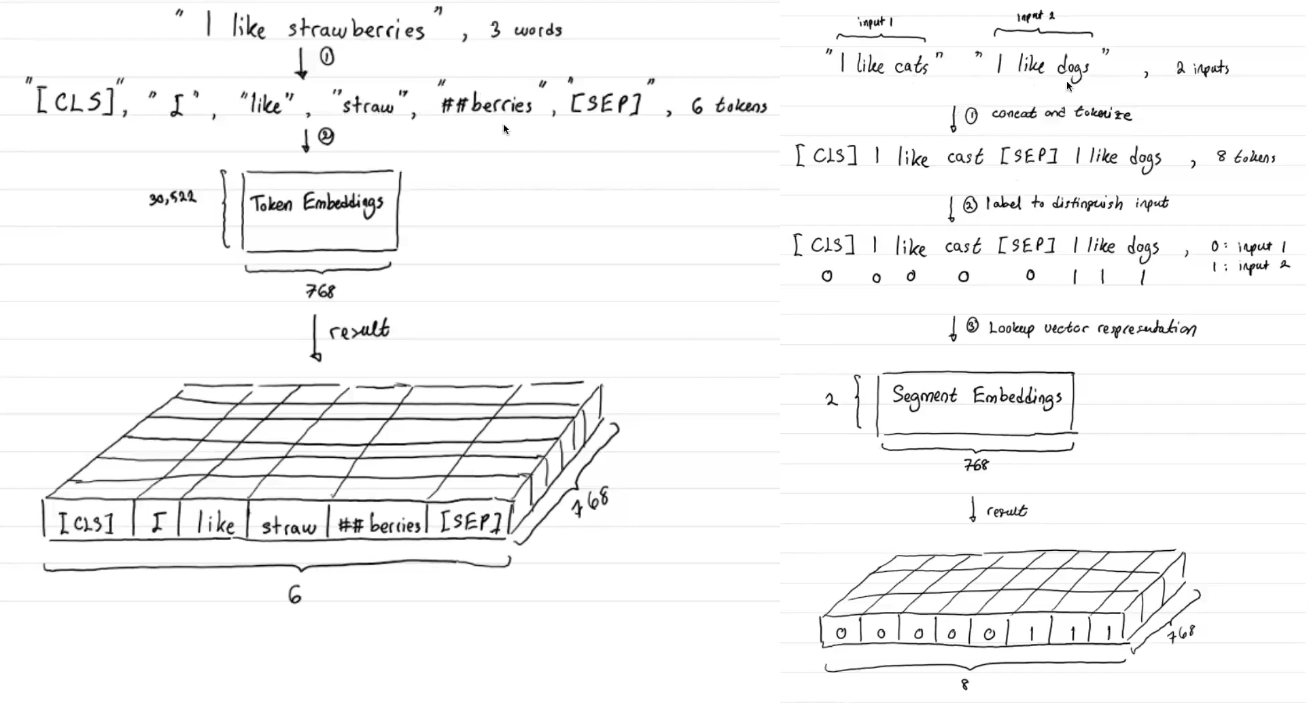 " I like strawberries ", 3 words
①
"[CLS]", "I", "like", "straw", "##berries", [SEP]", 6 tokens
②
30,522
Token Embeddings
768
result
[CLS] I like straw ##berries [SEP]
768
6
input 1 input 2
"I like cats" "I like dogs", 2 inputs
① concat and tokenize
[CLS] I like cast [SEP] I like dogs, 8 tokens
② label to distinguish input
[CLS] I like cast [SEP] I like dogs, 0: input 1
1: input 2
0 0 0 0 0 1 1 1
③ Lookup vector respresentation
2
Segment Embeddings
768
result
0 0 0 0 0 1 1 1
768
8